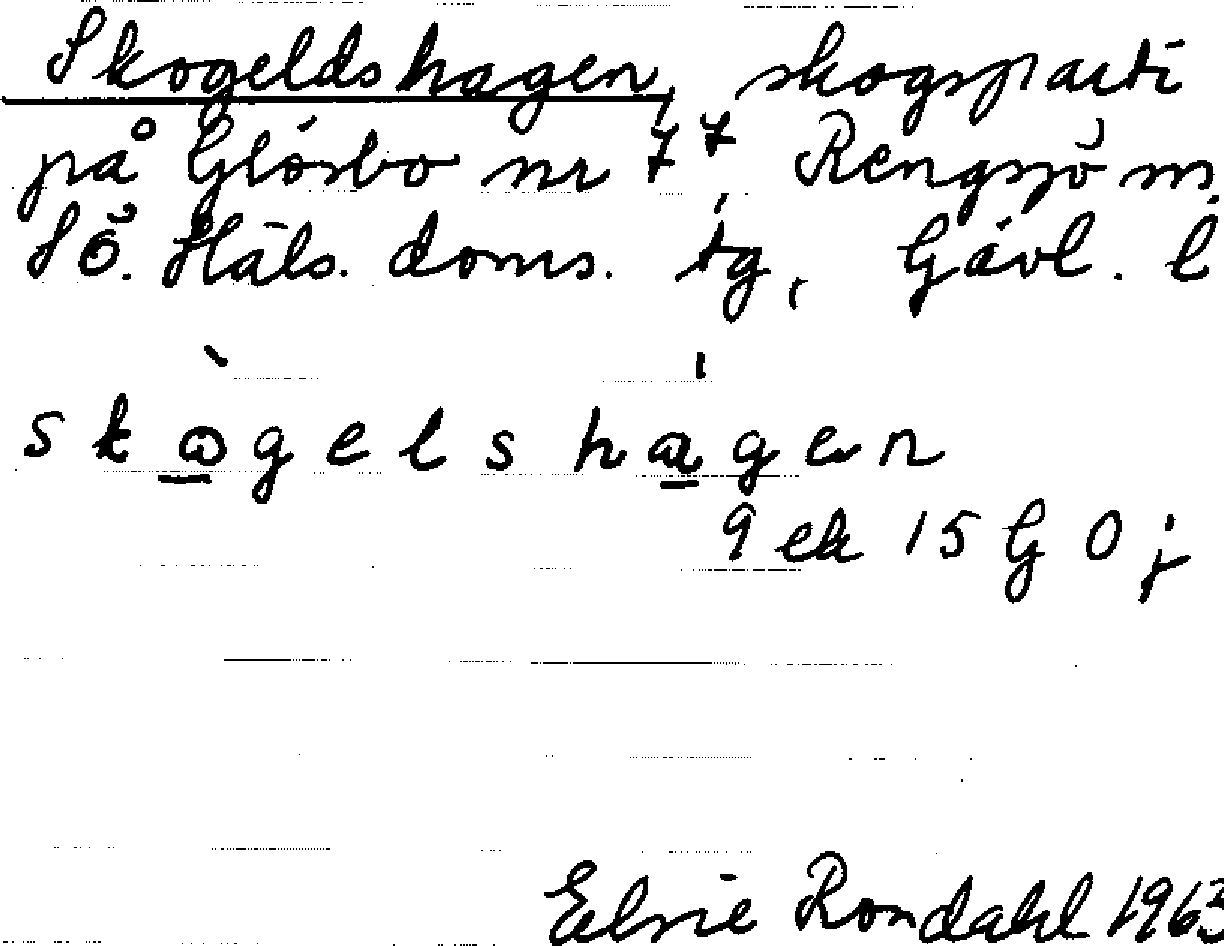 Skogeldshagen, skogsparti
på Glösbo nr 7⁷, Rengsjö sn.
SÖ. Häls. doms. tg, Gävl. l
skogelshagen
9 ek 15 G 0 j
Elsie Rondahl 1963